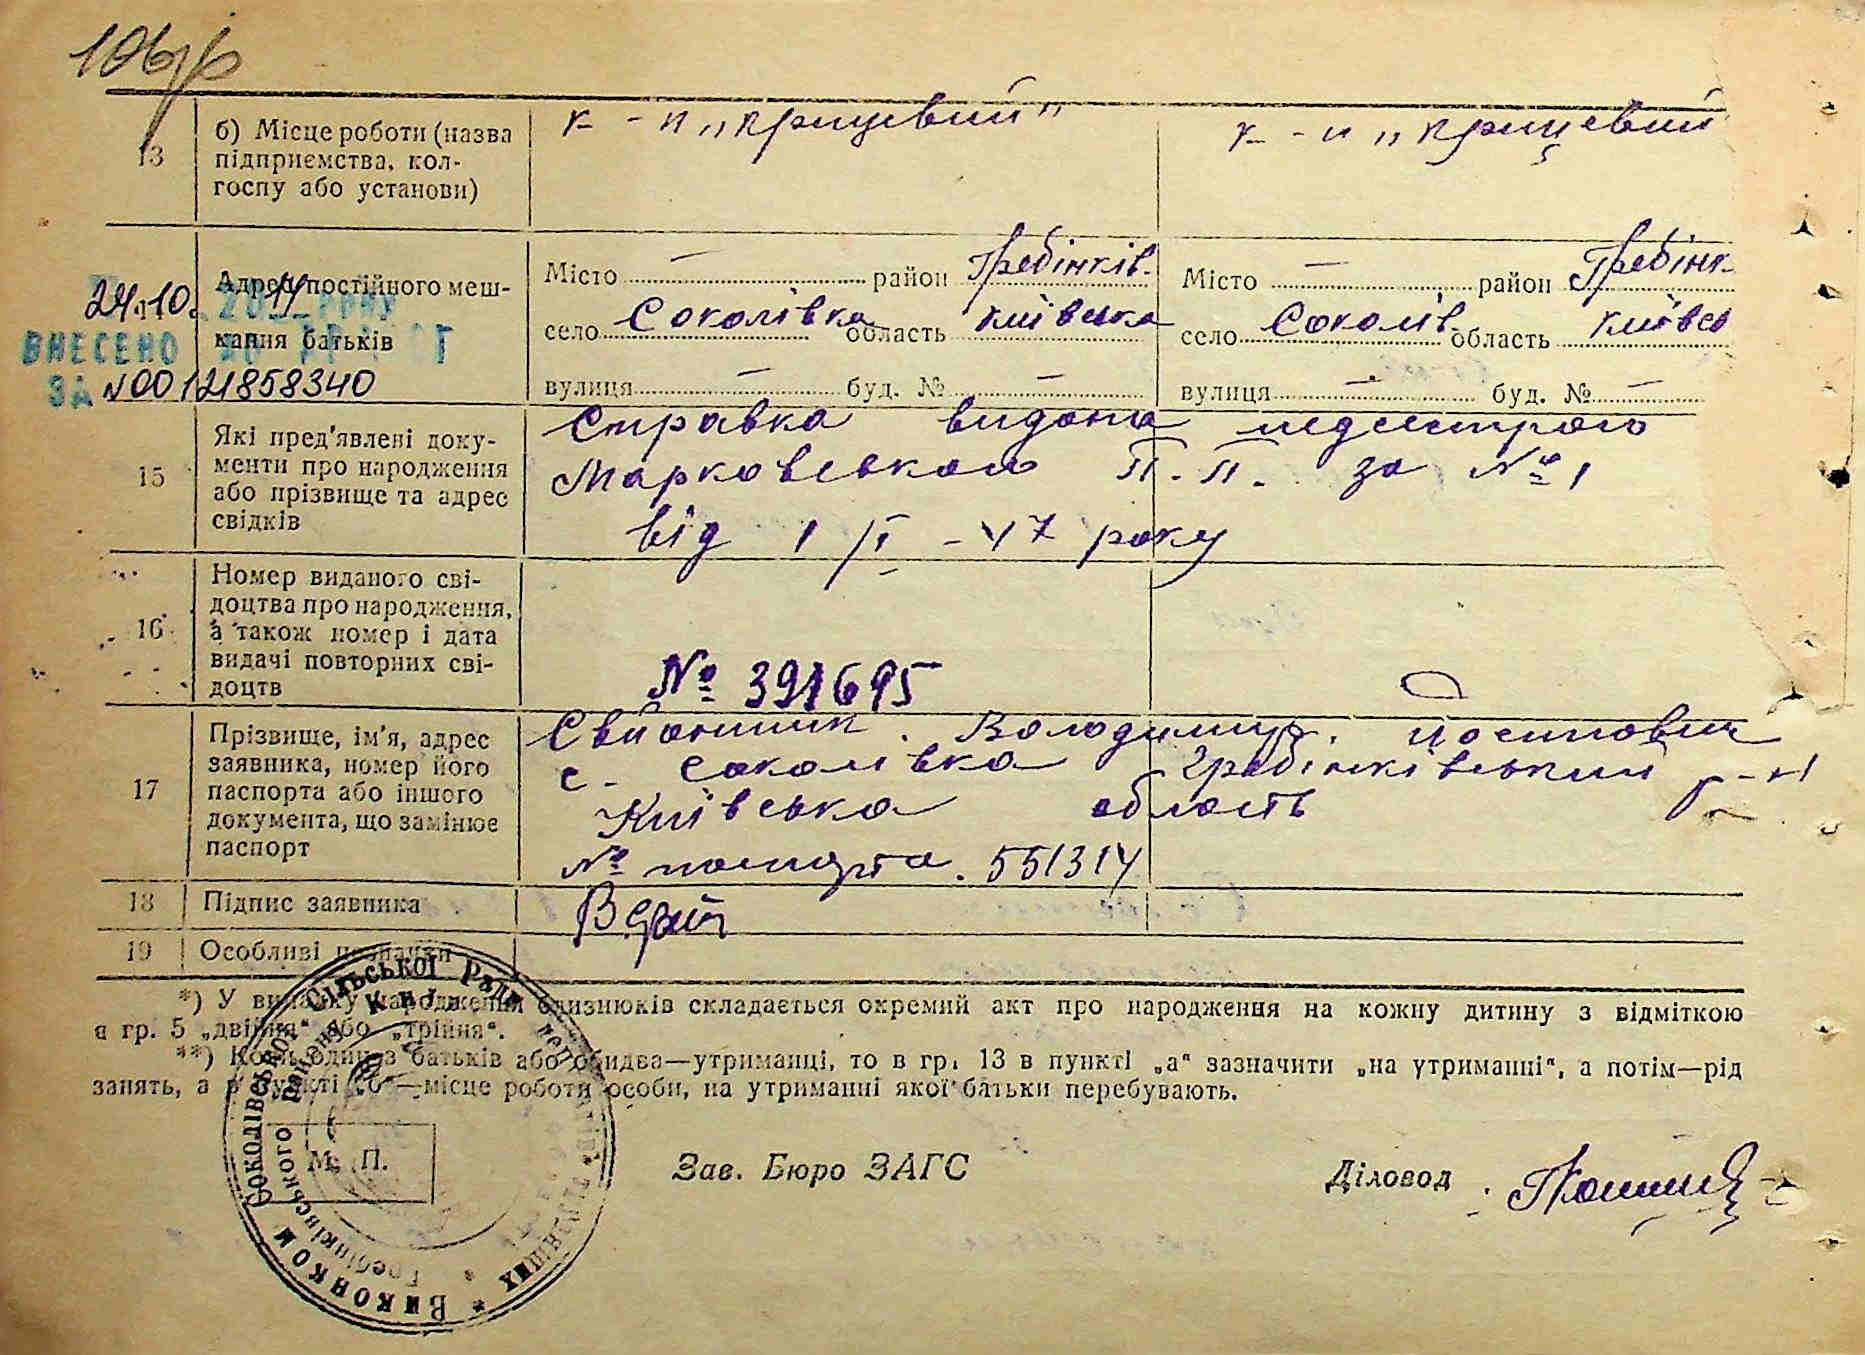 13
б) Місце роботи (назва підприємства, колгоспу або установи)
к-п „Крицевий"
к-п „Крицевий
24.10. 2011 РОКУ
ВНЕСЕНО
ЗА №00121858340
Адрес постійного мешкання батьків
Місто — район Гребінків.
село Соколівка область Київська
вулиця — буд. № —
Місто — район Гребінк.
село Соколів. область Київсь
вулиця — буд. № —
15
Які пред'явлені документи про народження або прізвище та адрес свідків
Справка видана медсестрою
Марковською П. П. за № 1
від 1/I - 47 року
16
Номер виданого свідоцтва про народження, а також номер і дата видачі повторних свідоцтв
№ 391695
17
Прізвище, ім'я, адрес заявника, номер його паспорта або іншого документа, що замінює паспорт
Володимир Йосипович
с. Соколівка Гребінківський р-н
Київська область
№ паспорта. 551314
18
Підпис заявника
19
Особливі позначки
*) У випадку народження близнюків складається окремий акт про народження на кожну дитину з відміткою
в гр. 5 „двійня" або „трійня".
**) Коли один з батьків або обидва—утриманці, то в гр. 13 в пункті „а" зазначити „на утриманні", а потім—рід
занять, а в пункті „б"—місце роботи особи, на утриманні якої батьки перебувають.
М. П.
Зав. Бюро ЗАГС
Діловод
Виконком Соколівської Сільської Ради депутатів трудящих
Гребінківського району